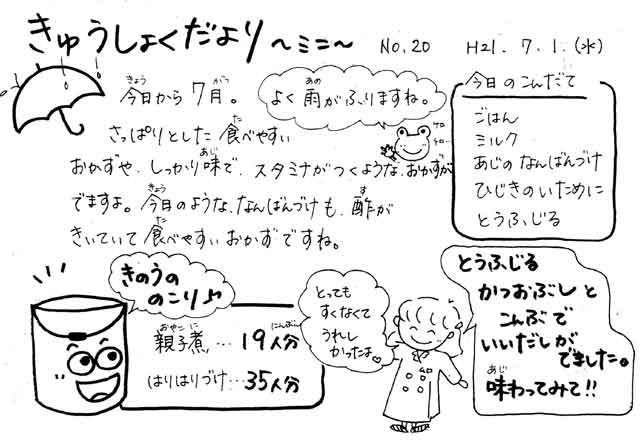 きゅうしょくだより ～ミニ～ No.20 H21.7.1.(水)
今日から7月。
さっぱりとした食べやすい
おかずや、しっかり味で、スタミナがつくような、おかずが
でますよ。今日のような、なんばんづけも、酢が
きいていて食べやすいおかずですね。
よく雨がふりますね。
ケロ
ケロ…
今日のこんだて
ごはん
ミルク
あじのなんばんづけ
ひじきのいために
とうふじる
きのうの
のこり♪
親子煮…19人分
はりはりづけ…35人分
とっても
すくなくて
うれし
かったよ
とうふじる
かつおぶしと
こんぶで
いいだしが
でました。
味わってみて!!